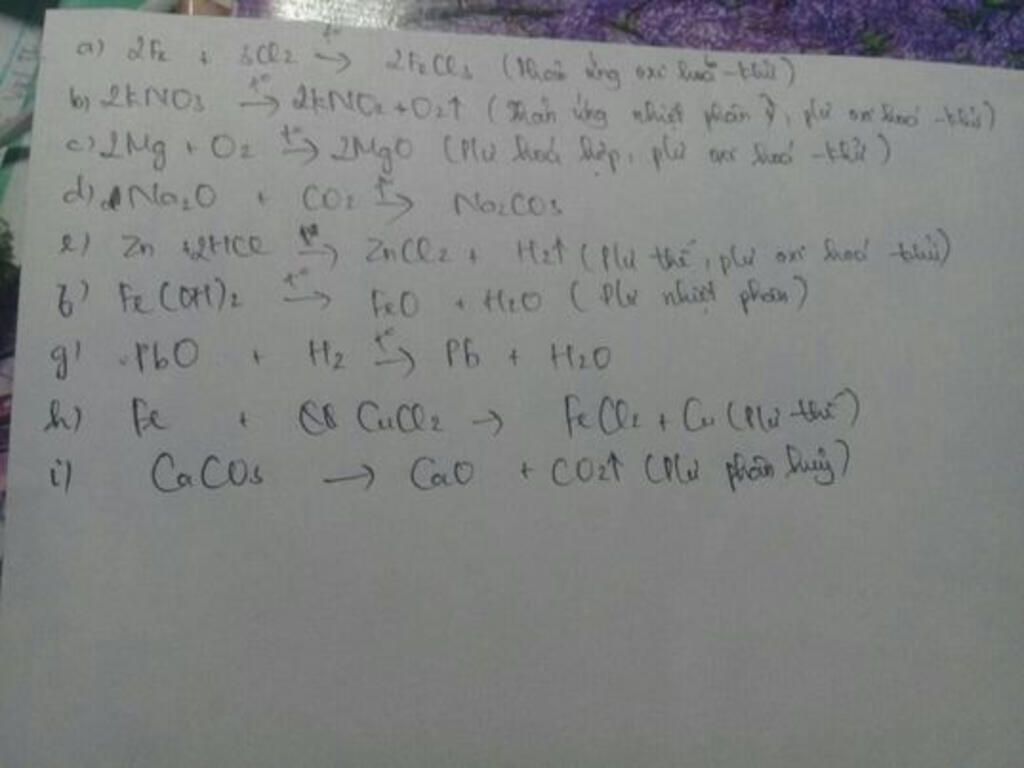 a) 2Fe + 3Cl2 t° → 2FeCl3 (Phản ứng oxi hoá - khử)
b) 2KNO3 t° → 2KNO2 + O2↑ (Phản ứng nhiệt phân, pư oxi hoá - khử)
c) 2Mg + O2 t° → 2MgO (Pư hoá hợp, pư oxi hoá - khử)
d) Na2O + CO2 t° → Na2CO3
e) Zn + 2HCl → ZnCl2 + H2↑ (Pư thế, pư oxi hoá - khử)
f) Fe(OH)2 t° → FeO + H2O (Pư nhiệt phân)
g) PbO + H2 t° → Pb + H2O
h) Fe + CuCl2 → FeCl2 + Cu (Pư thế)
i) CaCO3 → CaO + CO2↑ (Pư phân huỷ)